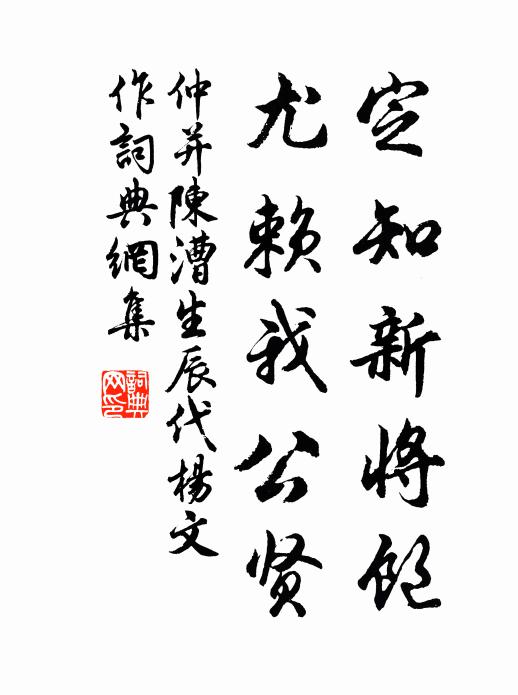 定知新將飽
尤赖我公贤
仲并陳漕生辰代楊文
作詞典網集
詞典网印